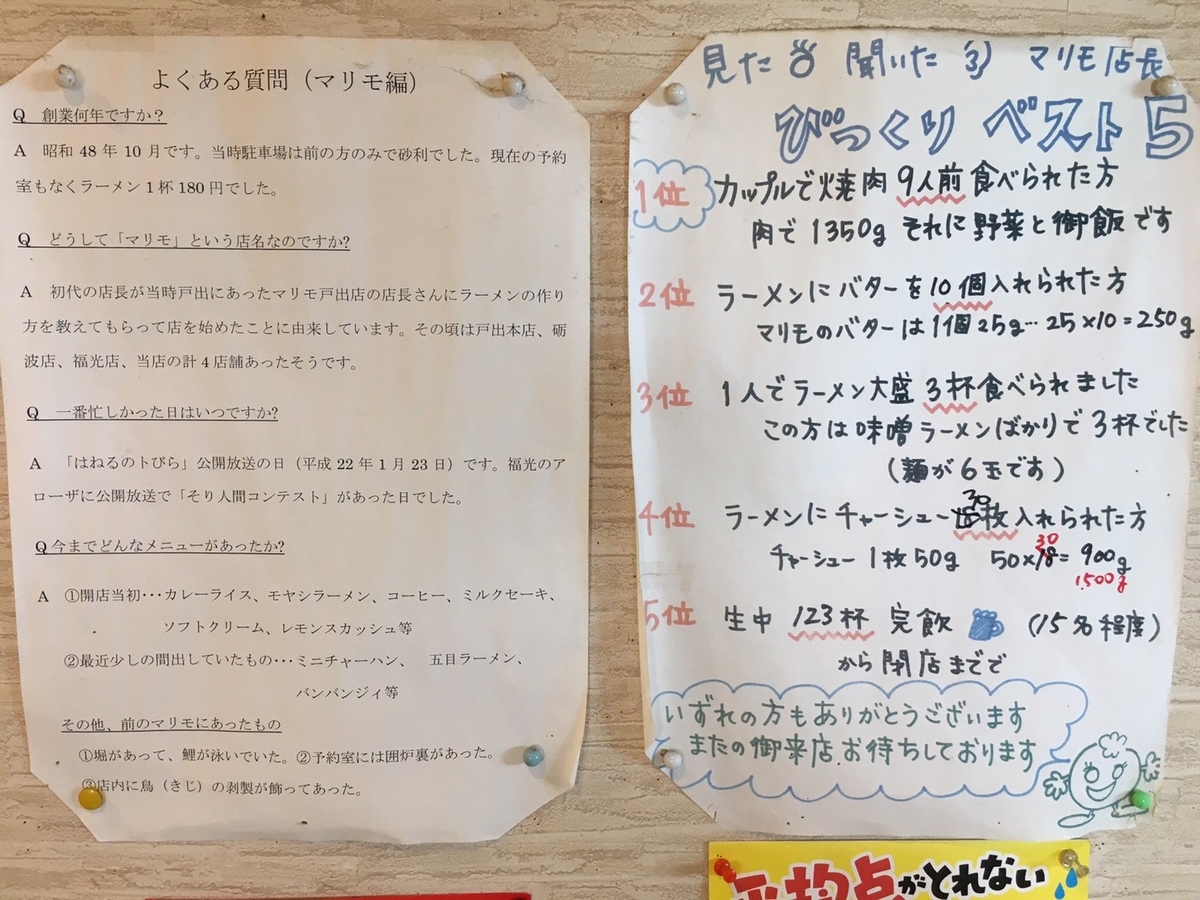 よくある質問（マリモ編）
Q 創業何年ですか？
A 昭和 48 年 10 月です。当時駐車場は前の方のみで砂利でした。現在の予約
室もなくラーメン 1 杯 180 円でした。
Q どうして「マリモ」という店名なのですか?
A 初代の店長が当時戸出にあったマリモ戸出店の店長さんにラーメンの作り
方を教えてもらって店を始めたことに由来しています。その頃は戸出本店、砺
波店、福光店、当店の計 4 店舗あったそうです。
Q 一番忙しかった日はいつですか?
A 「はねるのトびら」公開放送の日（平成 22 年 1 月 23 日）です。福光のア
ローザに公開放送で「そり人間コンテスト」があった日でした。
Q 今までどんなメニューがあったか?
A ①開店当初･･･カレーライス、モヤシラーメン、コーヒー、ミルクセーキ、
ソフトクリーム、レモンスカッシュ等
②最近少しの間出していたもの･･･ミニチャーハン、 五目ラーメン、
バンバンジィ等
その他、前のマリモにあったもの
①堀があって、鯉が泳いでいた。②予約室には囲炉裏があった。
③店内に鳥（きじ）の剥製が飾ってあった。
見た 聞いた マリモ店長
びっくり ベスト5
1位 カップルで焼肉 9人前 食べられた方
肉で 1350g それに野菜と御飯です
2位 ラーメンにバターを10個入れられた方
マリモのバターは1個25g…25×10=250g
3位 1人でラーメン大盛 3杯食べられました
この方は味噌ラーメンばかりで3杯でした
(麺が6玉です)
30
4位 ラーメンにチャーシュー枚入れられた方
30
チャーシュー1枚50g 50×18=900g
1500g
5位 生中 123杯 完飲 (15名程度)
から閉店までで
いずれの方もありがとうございます
またの御来店.お待ちしております
平均点がとれない